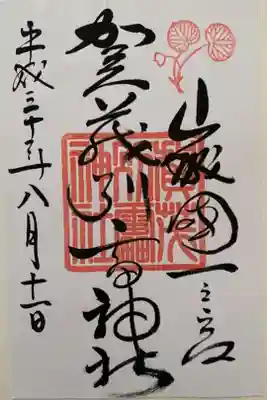 山城國一之宮
賀茂別雷神社
平成三十年八月十一日
賀茂
別雷
神社